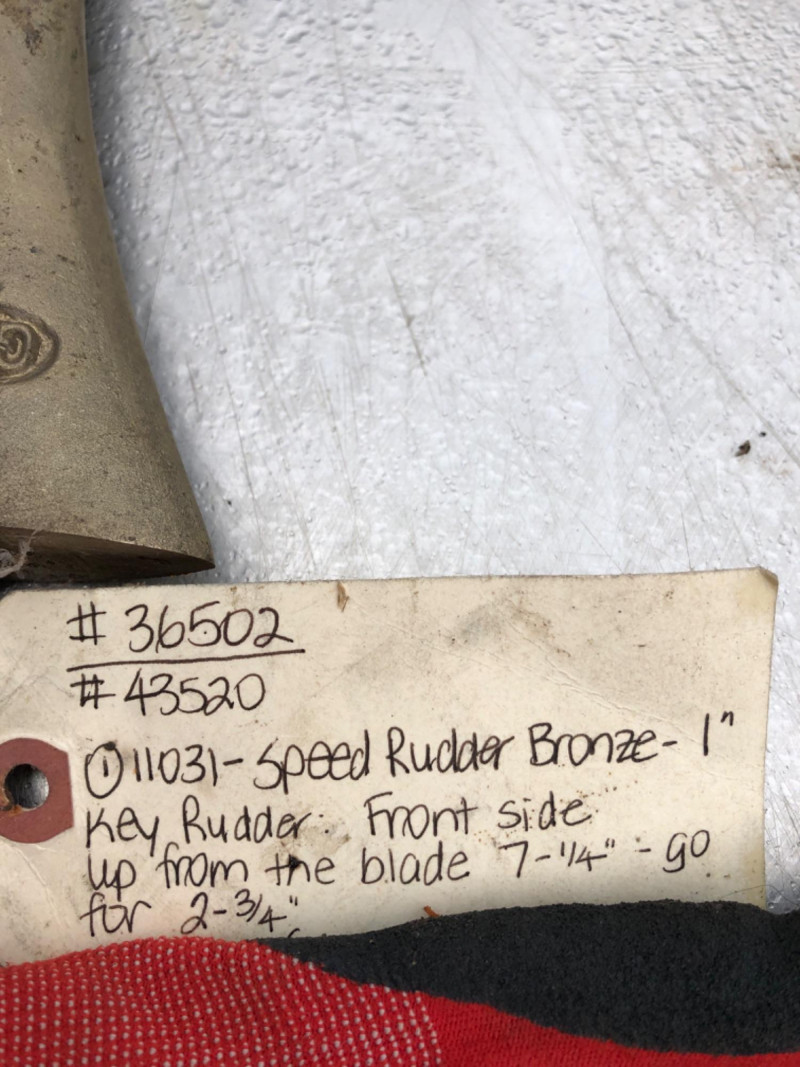 # 36502
# 43520
① 11031-Speed Rudder Bronze- 1"
Key Rudder. Front side
up from the blade 7-1/4" - go
for 2-3/4"